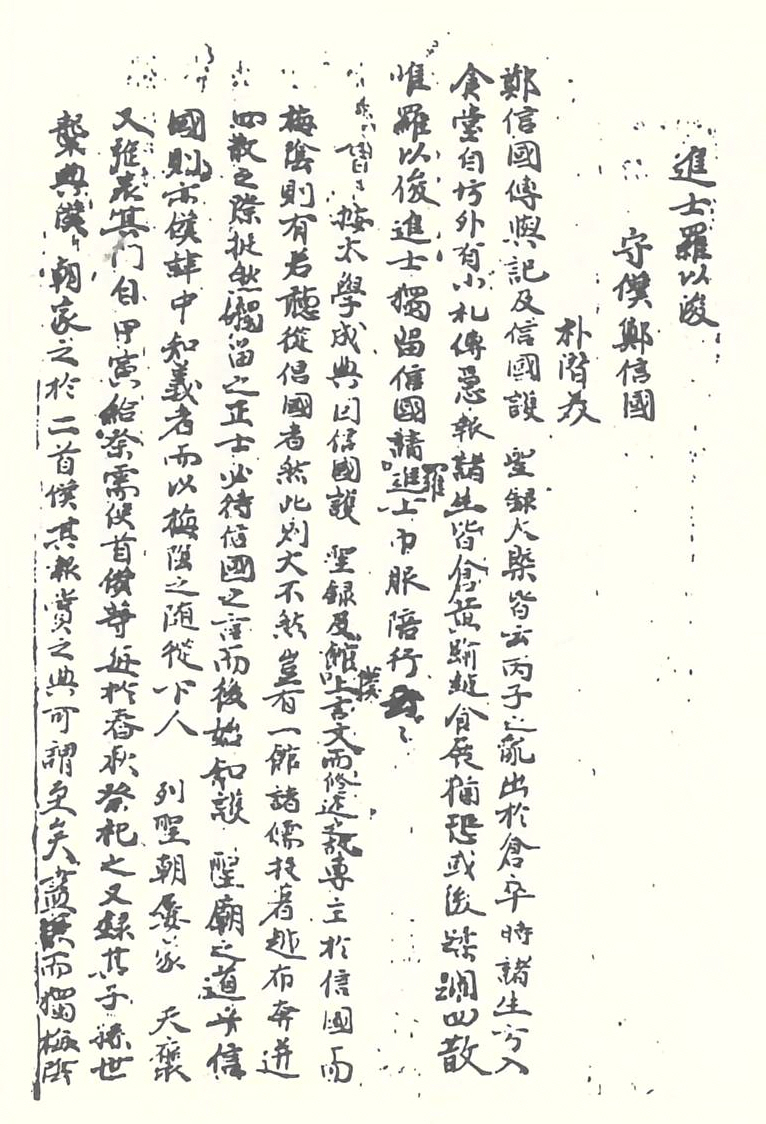 進士羅以浚
守僕鄭信國
朴潛美
鄭信國傳與記及信國護 聖錄大槩皆云丙子之亂出於倉卒時諸生方入
食堂自坊外有小札傳急報諸生皆倉黃踰越食床猶恐或後蹂躝四散
惟羅以俊進士獨留信國請羅進士巾服陪行
按太學成典曰信國護 聖錄及館僕上言文而修述之就專主於信國而
梅陰則有若聽從信國者然此則大不然豈有一館諸儒投著越布奔迸
四散之際挺然獨留之正士必待信國之言而後始知護 聖廟之道乎信
國則亦僕輩中知義者而以梅陰之隨從下人 列聖朝屢蒙 天褒
又旌表其門自甲寅給祭需使首僕等每於春秋祭祀之又錄其子孫世
襲典僕 朝家之於二首僕其報賞之典可謂至矣盡矣而獨梅陰